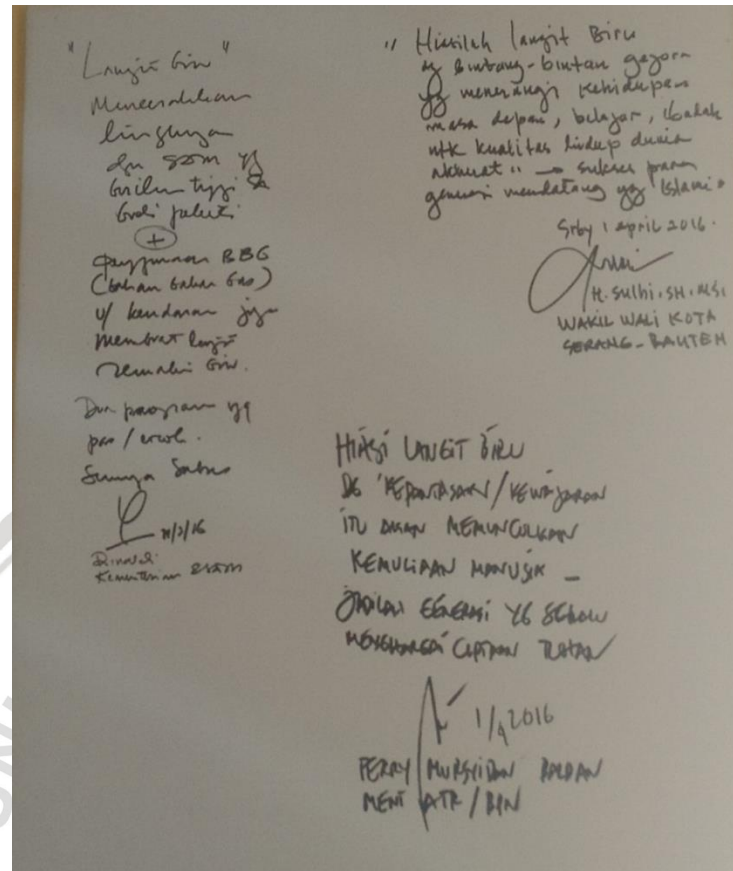 "Langit Biru"
Mencerdaskan
lingkungan
dn SDM yg
tinggi &
budi pekerti
+
penggunaan BBG
(bahan bakar gas)
u/ kendaraan juga
membuat langit
semakin biru.
Dua program yg
pas / cocok.
Semoga Sukses
31/3/16
Kementerian ESDM
" Hiasilah langit Biru
dg bintang-bintang
yg menerangi kehidupan
masa depan, belajar, ibadah
utk kualitas hidup dunia
akherat" → sukses para
generasi mendatang yg Islami"
Srby 1 april 2016.
H. Sulhi. SH. MSi
WAKIL WALI KOTA
SERANG - BANTEN
HIASI LANGIT BIRU
DG 'KEPANTASAN / KEWAJARAN
ITU AKAN MEMUNCULKAN
KEMULIAAN MANUSIA -
JADILAH GENERASI YG SELALU
MENGHARGAI CIPTAAN TUHAN
1/4 2016
FERRY MURSYIDAN BALDAN
MENT ATR / BPN